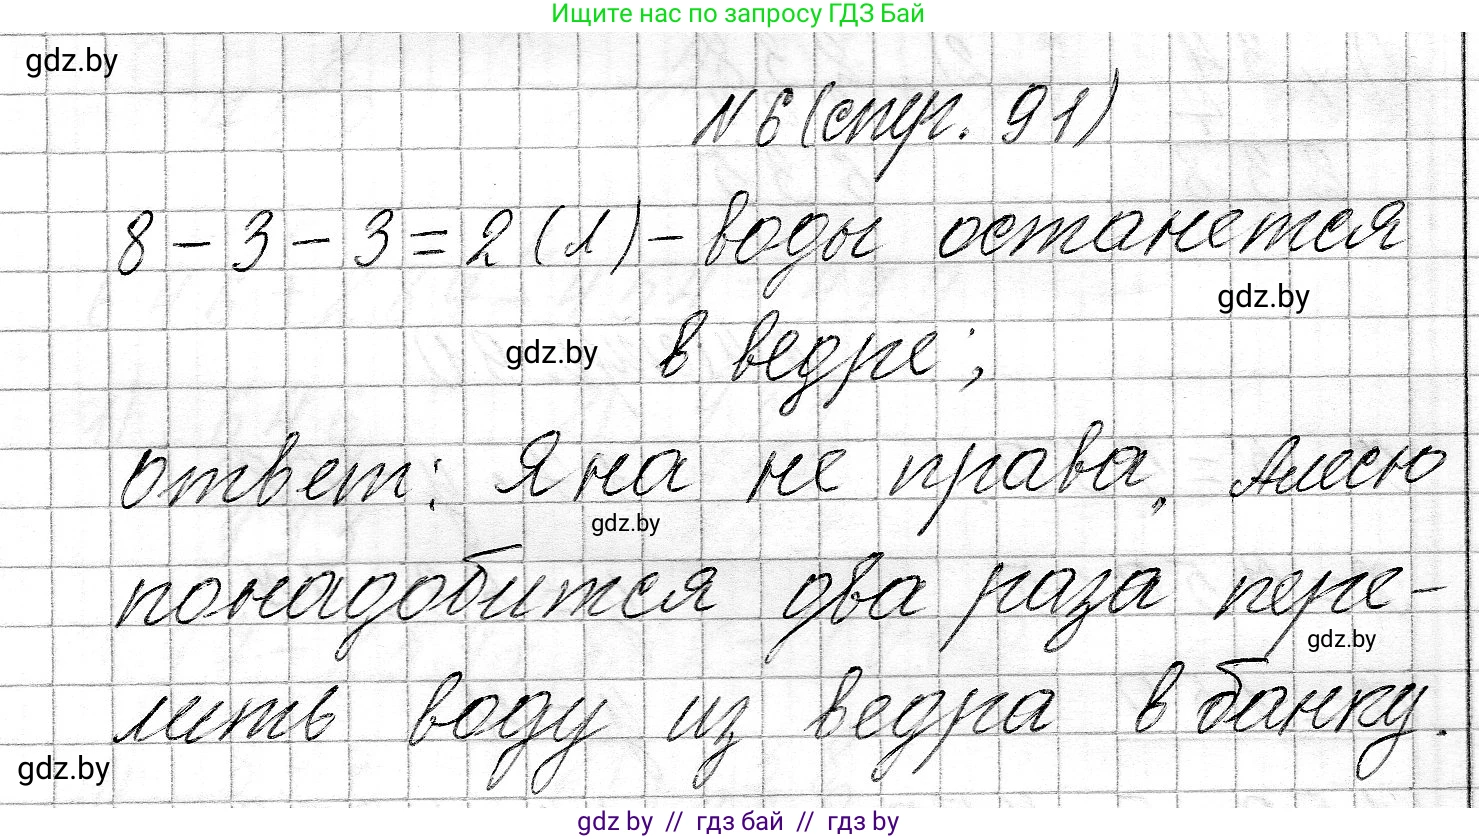 Ищите нас по запросу ГДЗ Бай
gdz.by
№6 (стр. 91)
8 - 3 - 3 = 2 (л) - воды останется
gdz.by
gdz.by
в ведре;
ответ: Яна не права, Алесю
gdz.by
понадобится два раза пере-
gdz.by
лить воду из ведра в банку.
gdz.by
gdz by // гдз бай // гдз by